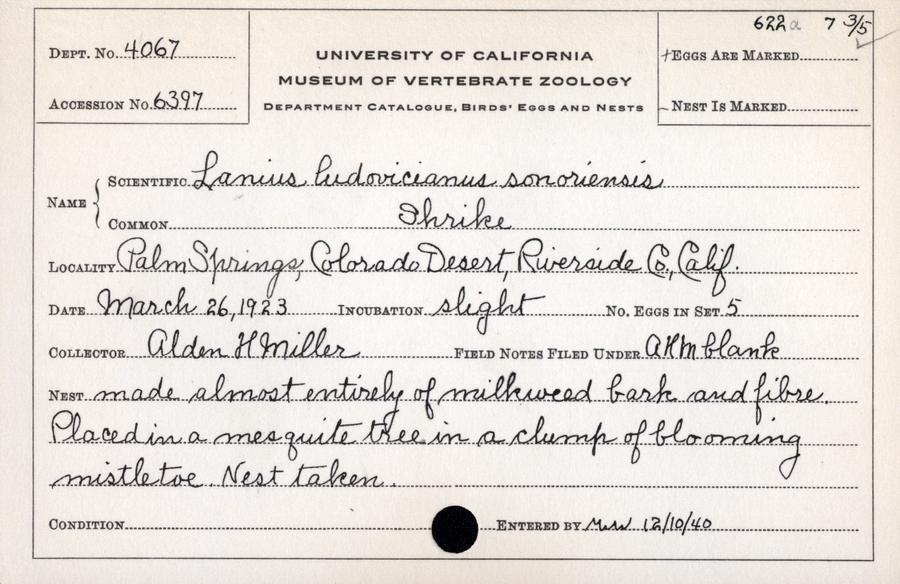 622a 7 3/5
DEPT. No. 4067
UNIVERSITY OF CALIFORNIA
+EGGS ARE MARKED
MUSEUM OF VERTEBRATE ZOOLOGY
ACCESSION No. 6397
DEPARTMENT CATALOGUE, BIRDS' EGGS AND NESTS
– NEST IS MARKED
NAME { SCIENTIFIC Lanius ludovicianus sonoriensis
COMMON Shrike
LOCALITY Palm Springs, Colorado Desert, Riverside Co., Calif.
DATE March 26, 1923 INCUBATION slight No. EGGS IN SET 5
COLLECTOR Alden H Miller FIELD NOTES FILED UNDER AHM blank
NEST made almost entirely of milkweed bark and fibre.
Placed in a mesquite tree in a clump of blooming
mistletoe. Nest taken.
CONDITION ENTERED BY 12/10/40